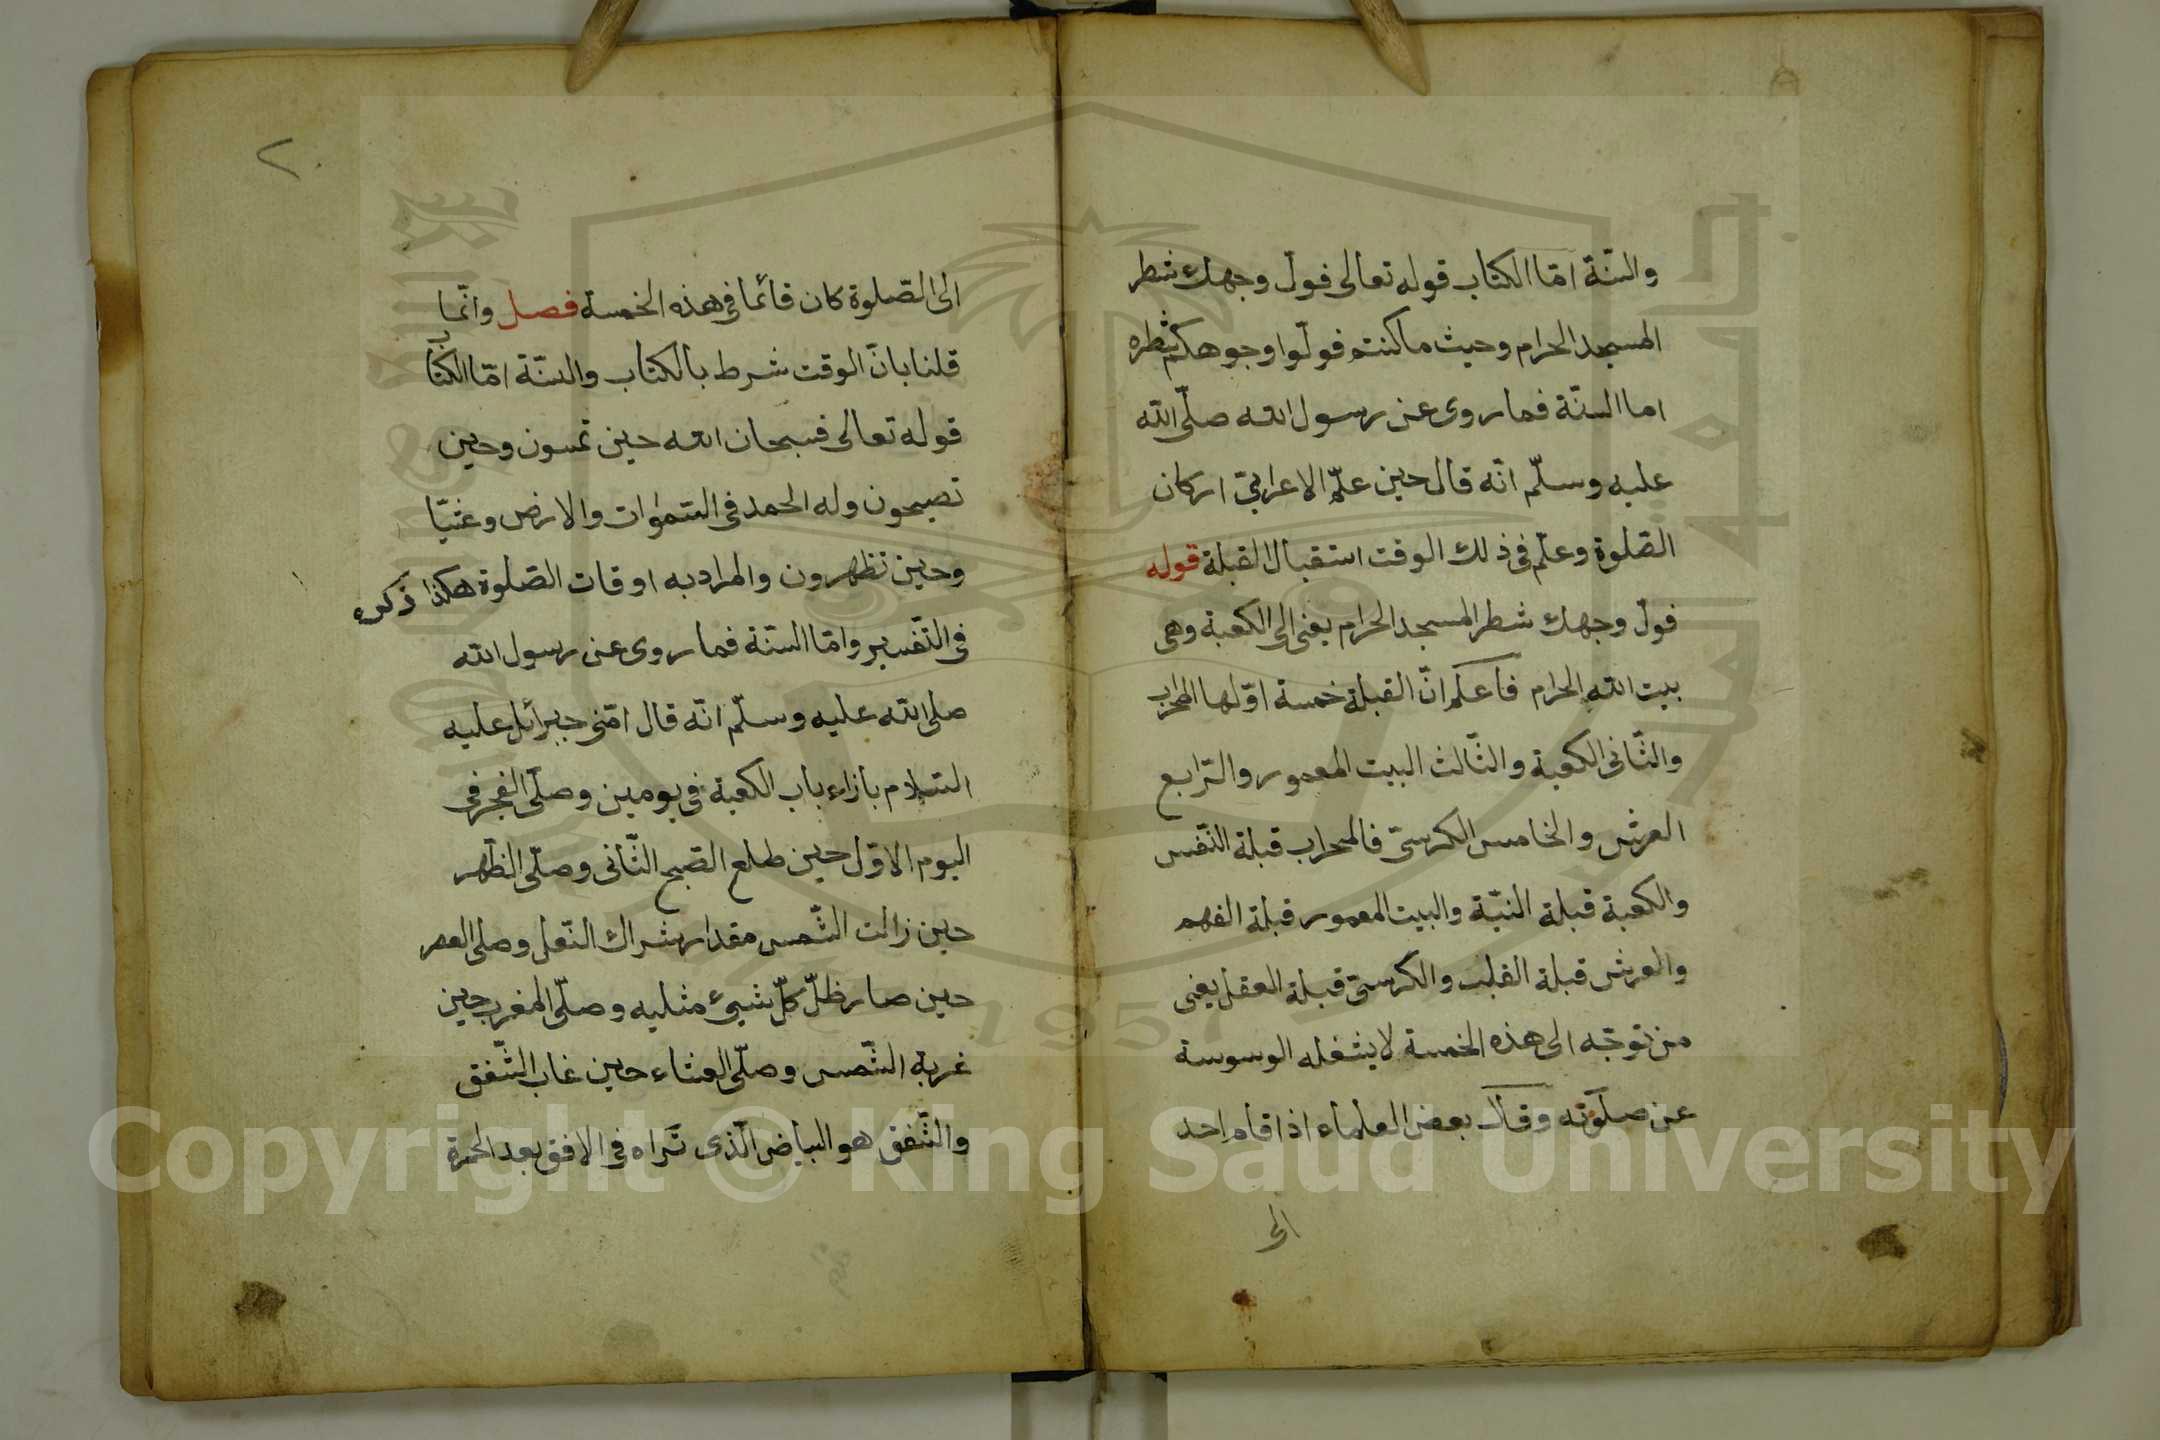 والسّنّة امّا الكتاب قوله تعالى فولّ وجهك شطر
المسجد الحرام وحيث ما كنتم فولّوا وجوهكم شطره
اما السنّة فما روى عن رسول الله صلّى الله
عليه وسلّم انّه قال حين علّم الاعرابىّ اركان
الصّلوة وعلّم فى ذلك الوقت استقبال القبلة قوله
فولّ وجهك شطر المسجد الحرام يعنى الى الكعبة وهى
بيت الله الحرام فاعلم انّ القبلة خمسة اوّلها المحراب
والثّانى الكعبة والثّالث البيت المعمور والرّابع
العرش والخامس الكرسىّ فالمحراب قبلة النّفس
والكعبة قبلة النيّة والبيت المعمور قبلة الفهم
والعرش قبلة القلب والكرسىّ قبلة العقل يعنى
من توجّه الى هذه الخمسة لا يشغله الوسوسة
عن صلوته وقال بعض العلماء اذا قام احد
الى
٢
الى الصّلوة كان قائما فى هذه الخمسة فصل وانّما
قلنا بانّ الوقت شرط بالكتاب والسّنّة امّا الكتاب
قوله تعالى فسبحان الله حين تمسون وحين
تصبحون وله الحمد فى السّموات والارض وعشيّا
وحين تظهرون والمراد به اوقات الصّلوة هكذا ذكر
فى التّفسير وامّا السّنّة فما روى عن رسول الله
صلى الله عليه وسلّم انّه قال امّنى جبرائل عليه
السّلام بازاء باب الكعبة فى يومين وصلّى الفجر فى
اليوم الاوّل حين طلع الصّبح الثّانى وصلّى الظّهر
حين زالت الشّمس مقدار شراك النّعل وصلى العصر
حين صار ظلّ كلّ شىئ مثليه وصلّى المغرب حين
غربة الشّمس وصلّى العشاء حين غاب الشّفق
والشّفق هو البياض الّذى تراه فى الافق بعد الحمرة
Copyright © King Saud University
1957